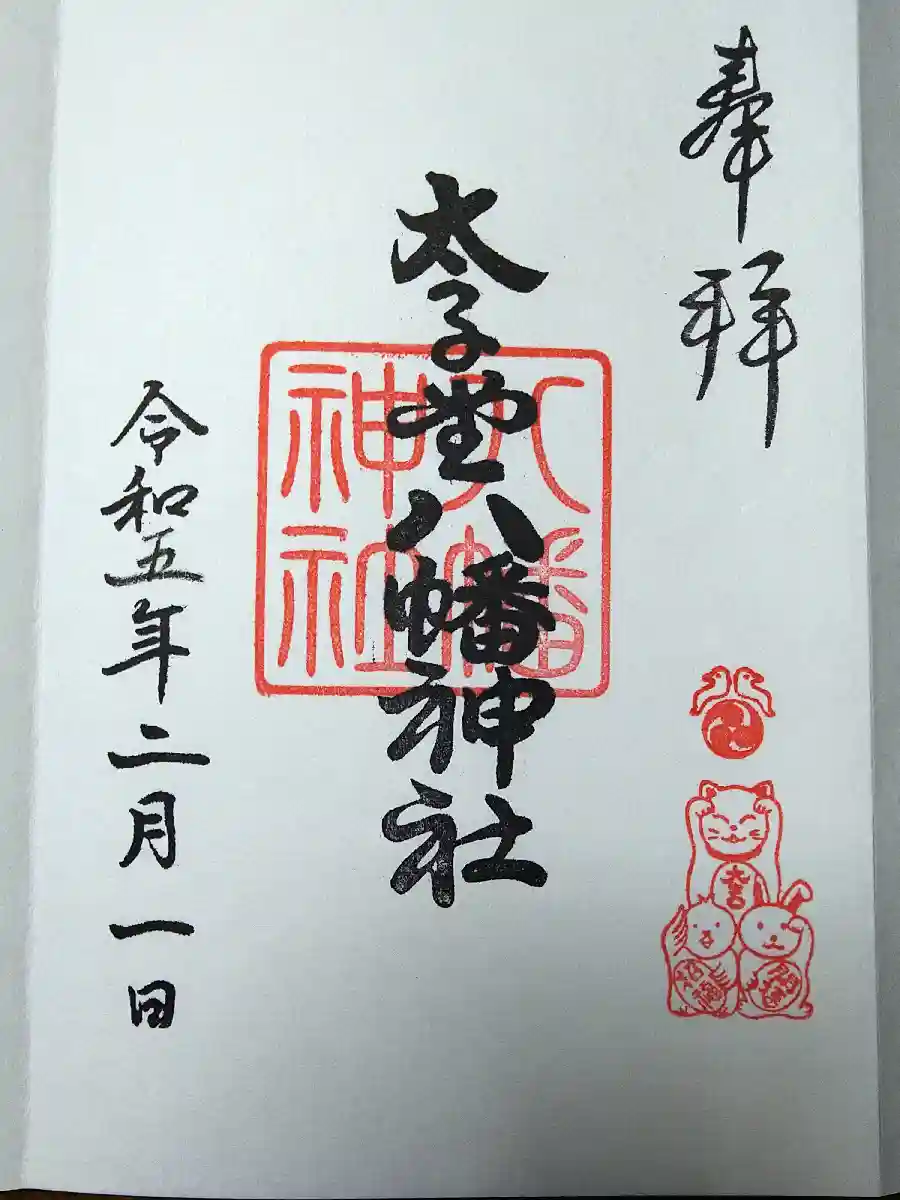 奉拝
太子堂八幡神社
八幡
神社
令和五年二月一日
大吉
招福